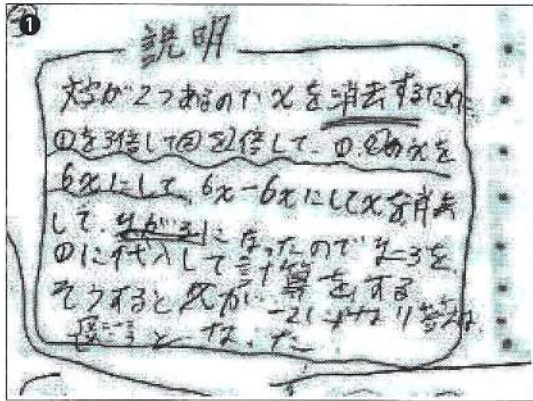 ❶
説明
文字が2つあるのでxを消去するために
①を3倍して②を2倍して、①、②のxを
6xにして、6x-6xにしてxを消去
して、yが3になったのでy=3を
①に代入して計算をする
そうするとxが-2になり答えは
と なった